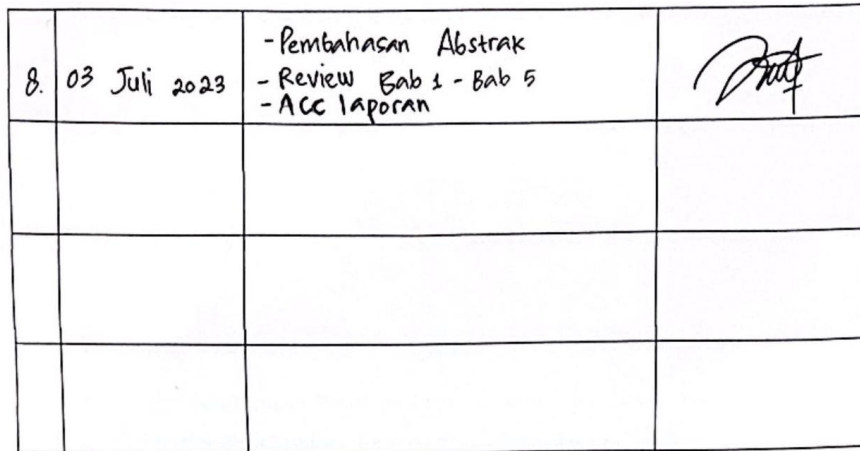 8. 03 Juli 2023
- Pembahasan Abstrak
- Review Bab 1 - Bab 5
- Acc laporan